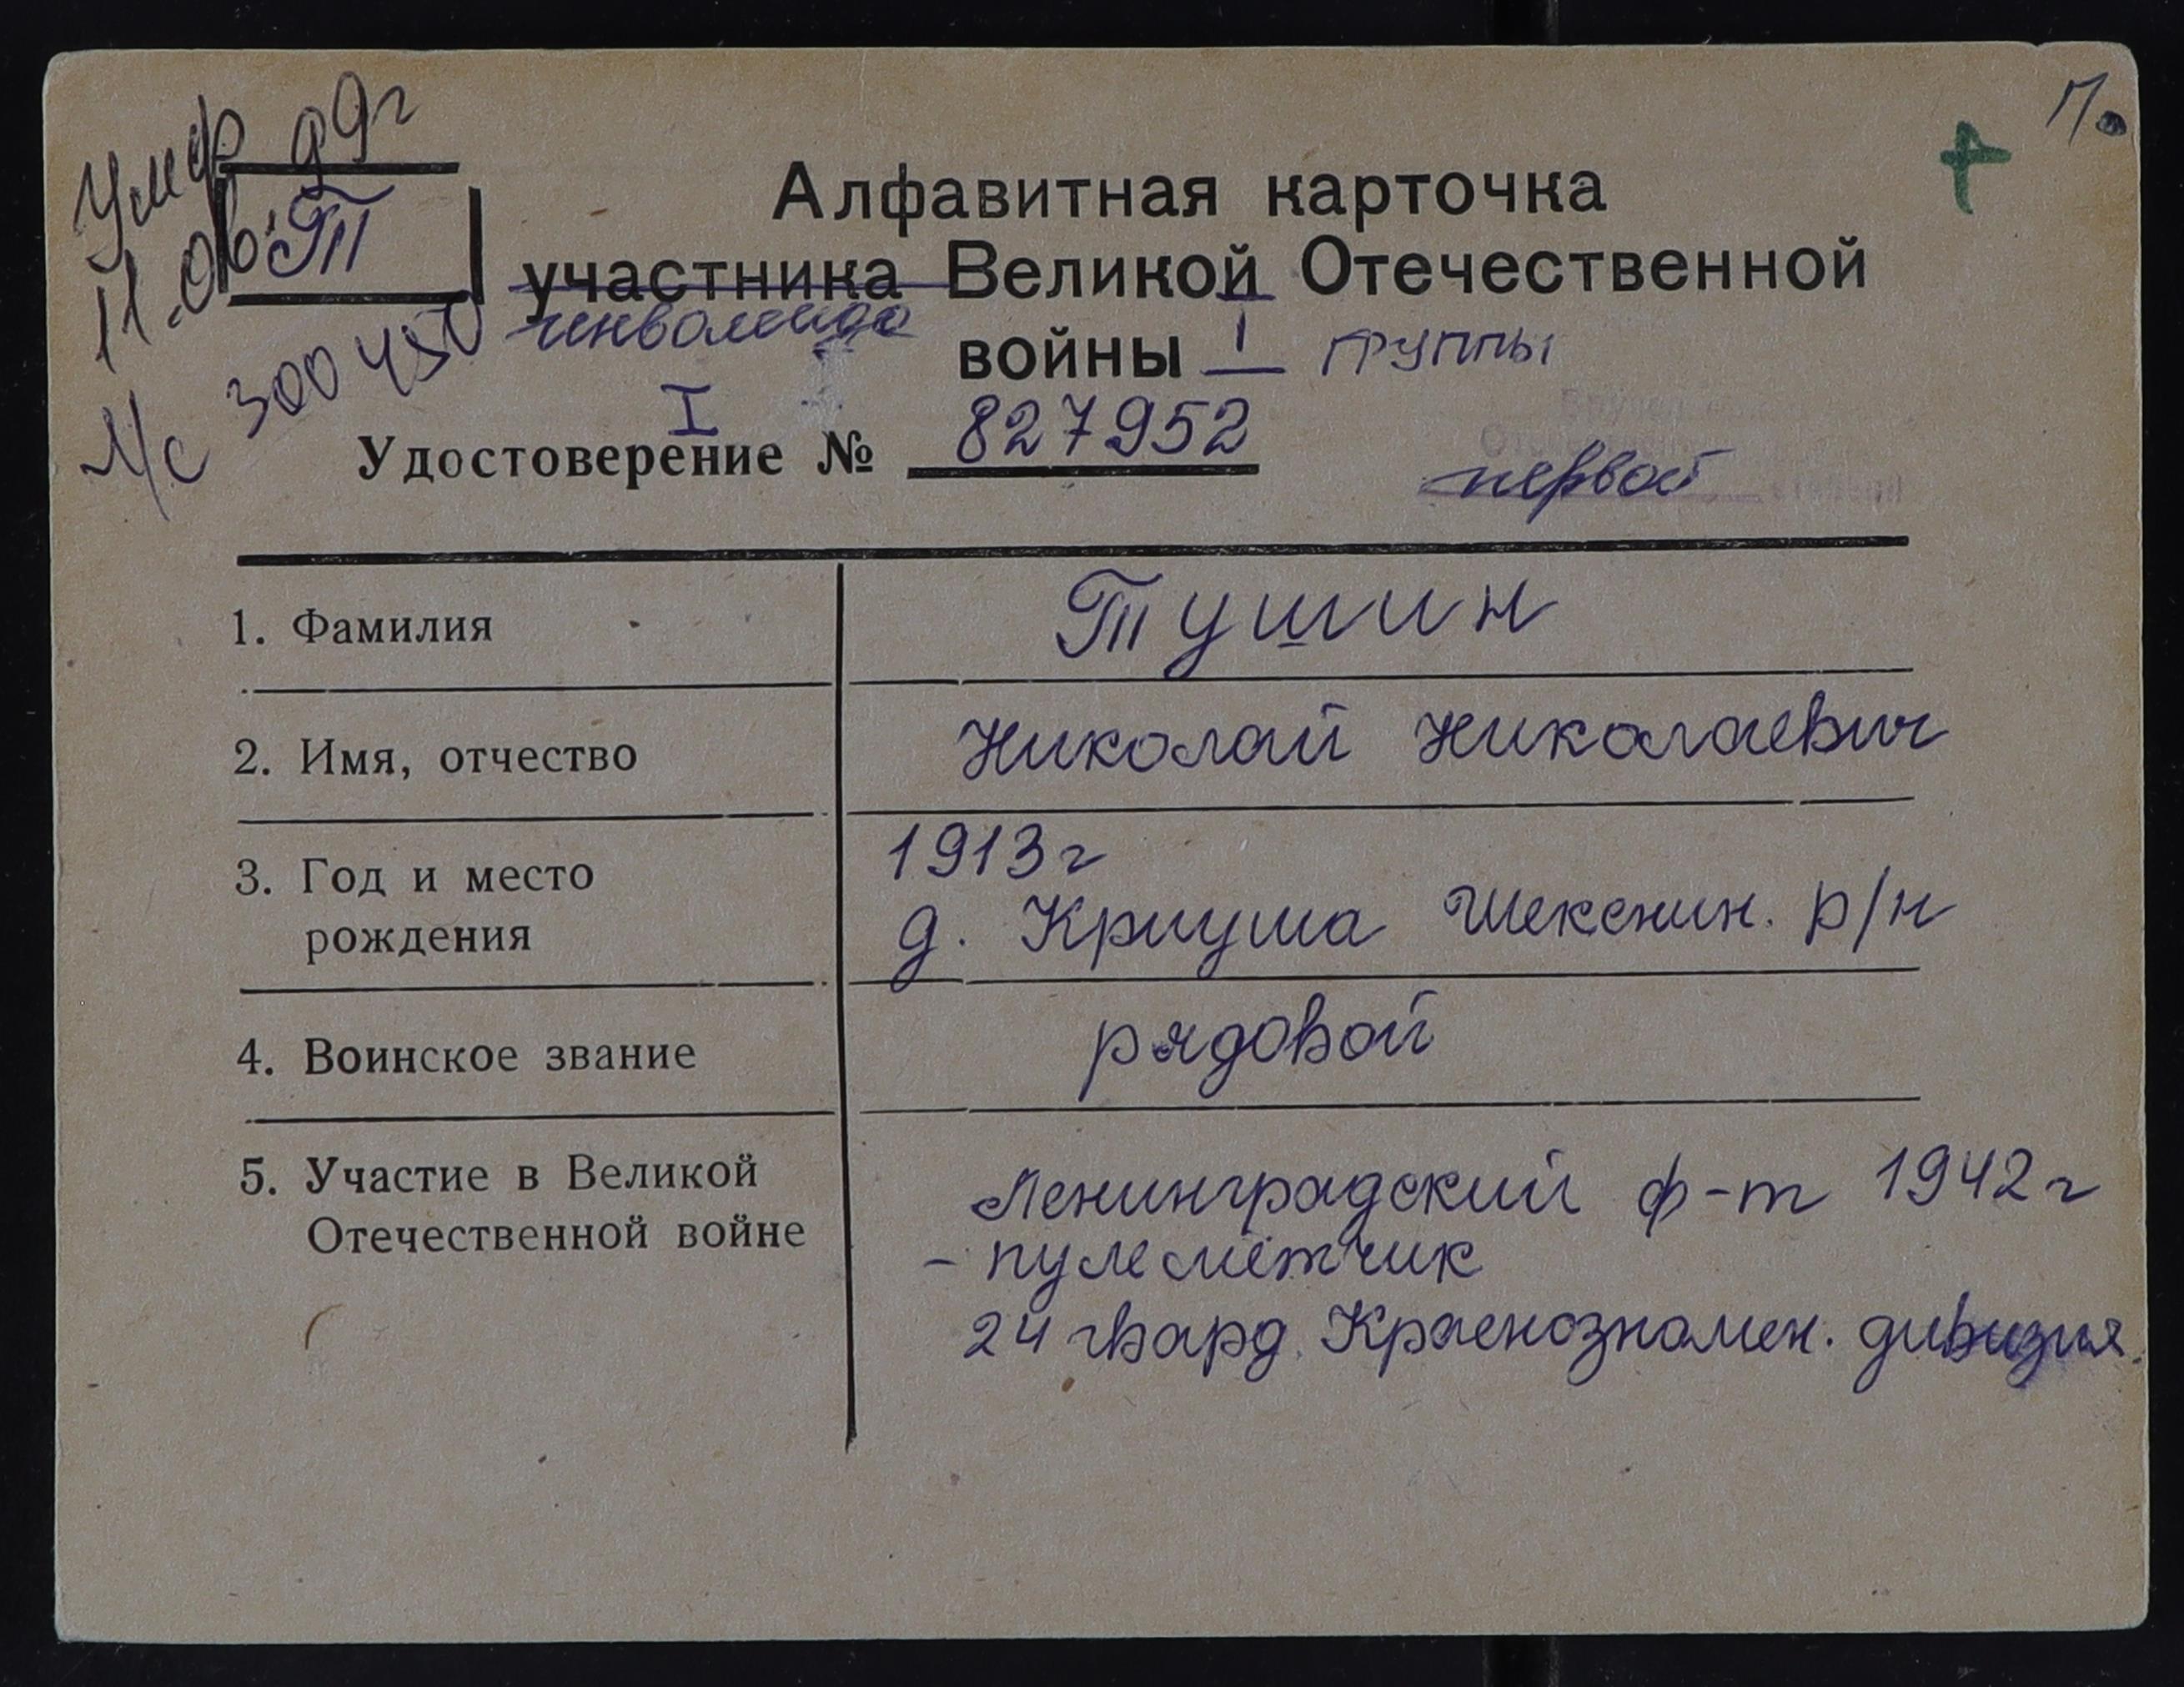 Умер 11.06.99г
Т
л/с 300450
По
Алфавитная карточка
участника Великой Отечественной
инвалида
войны I группы
I
Удостоверение № 827952
первой степени
1. Фамилия Тушин
2. Имя, отчество Николай Николаевич
3. Год и место рождения 1913г
д. Криуша Шекснин. р/н
4. Воинское звание рядовой
5. Участие в Великой Отечественной войне Ленинградский ф-т 1942г
- пулемётчик
24 гвард. Краснознамен. дивизия.